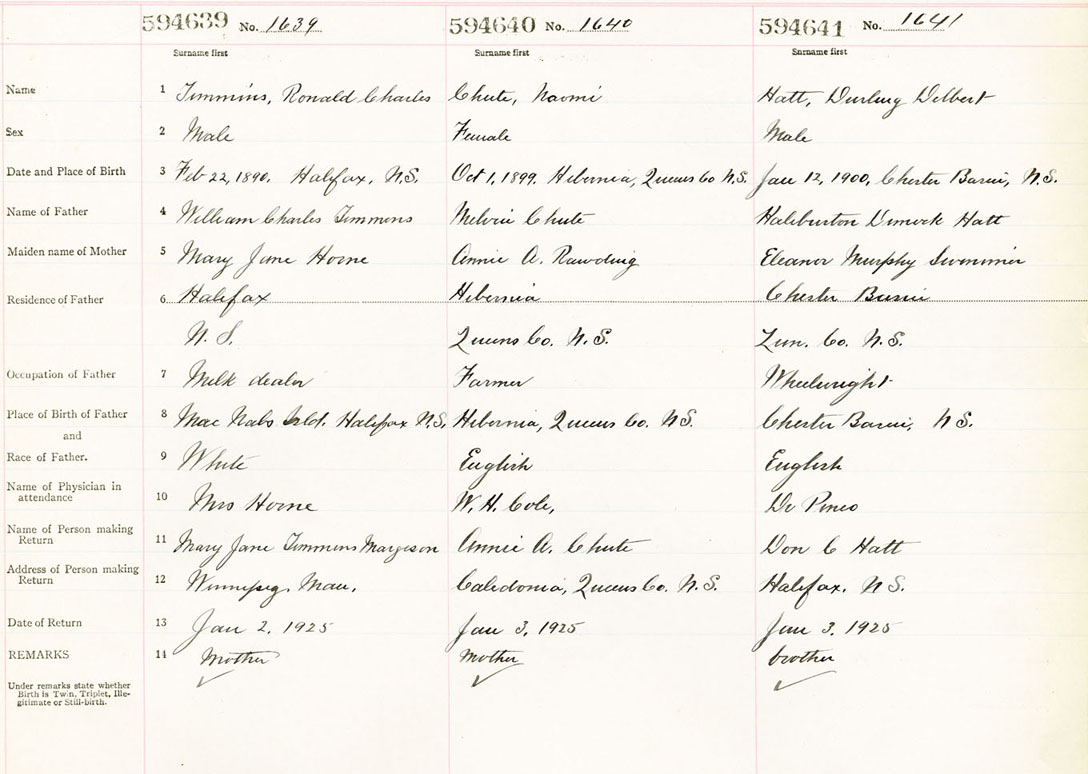 594639 No. 1639 594640 No. 1640 594641 No. 1641
Surname first Surname first Surname first
Name 1 Timmins, Ronald Charles Chute, Naomi Hatt, Durling Delbert
Sex 2 Male Female Male
Date and Place of Birth 3 Feb 22, 1890. Halifax, N.S. Oct 1, 1899. Hibernia, Queens Co N.S. Jan 12, 1900, Chester Basin, N.S.
Name of Father 4 William Charles Timmons Melvin Chute Haliburton Dimock Hatt
Maiden name of Mother 5 Mary Jane Horne Annie A. Rawding Eleanor Murphy Swinimer
Residence of Father 6 Halifax Hibernia Chester Basin
N. S. Queens Co. N.S. Lun. Co. N.S.
Occupation of Father 7 Milk dealer Farmer Wheelwright
Place of Birth of Father 8 Mac Nabs Isld. Halifax N.S. Hibernia, Queens Co. N.S. Chester Basin, N S.
and
Race of Father. 9 White English English
Name of Physician in
attendance 10 Mrs Horne W. H. Cole, Dr
Name of Person making
Return 11 Mary Jane Timmens Margeson Annie A. Chute Don C Hatt
Address of Person making
Return 12 Winnipeg, Man. Caledonia, Queens Co. N.S. Halifax. N S.
Date of Return 13 Jan 2, 1925 Jan 3, 1925 Jan 3, 1925
REMARKS 14 Mother Mother brother
Under remarks state whether
Birth is Twin, Triplet, Ille-
gitimate or Still-birth.